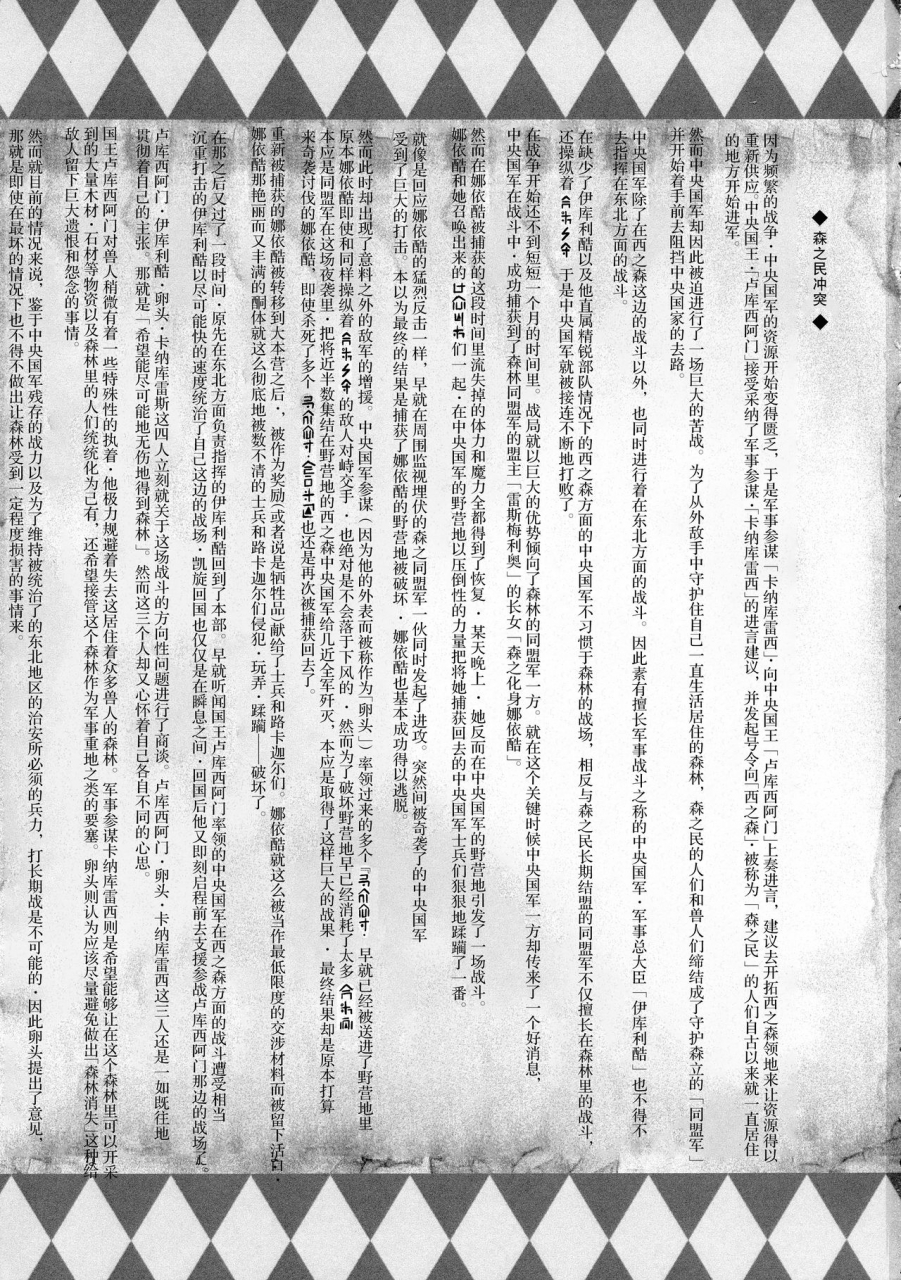 ◆ 森之民冲突 ◆
因为频繁的战争·中央国军的资源开始变得匮乏，于是军事参谋「卡纳库雷西」·向中央国王「卢库西阿门」上奏进言，建议去开拓西之森领地来让资源得以
重新供应·中央国王·「卢库西阿门」接受采纳了军事参谋·卡纳库雷西」的进言建议，并发起号令向「西之森」·被称为「森之民」的人们自古以来就一直居住
的地方开始进军。
然而中央国军却因此被迫进行了一场巨大的苦战。为了从外敌手中守护住自己一直生活居住的森林，森之民的人们和兽人们缔结成了守护森立的「同盟军」
并开始着手前去阻挡中央国家的去路。
中央国军除了在西之森这边的战斗以外，也同时进行着在东北方面的战斗。因此素有擅长军事战斗之称的中央国军·军事总大臣「伊库利酷」也不得不
去指挥在东北方面的战斗。
在缺少了伊库利酷以及他直属精锐部队情况下的西之森方面的中央国军不习惯于森林的战场，相反与森之民长期结盟的同盟军不仅擅长在森林里的战斗，
还操纵着 于是中央国军就被接连不断地打败了。
在战争开始还不到短短一个月的时间里。战局就以巨大的优势倾向了森林的同盟军一方。就在这个关键时候中央国军一方却传来了一个好消息，
中央国军在战斗中·成功捕获到了森林同盟军的盟主「雷斯梅利奥」的长女「森之化身娜依酷」。
然而在娜依酷被捕获的这段时间里流失掉的体力和魔力全都得到了恢复·某天晚上·她反而在中央国军的野营地引发了一场战斗。
娜依酷和她召唤出来的 们一起·在中央国军的野营地以压倒性的力量把将她捕获回去的中央国军士兵们狠狠地蹂躏了一番。
就像是回应娜依酷的猛烈反击一样，早就在周围监视埋伏的森之同盟军一伙同时发起了进攻。突然间被奇袭了的中央国军
受到了巨大的打击。本以为最终的结果是捕获了娜依酷的野营地被破坏·娜依酷也基本成功得以逃脱。
然而此时却出现了意料之外的敌军的增援。中央国军参谋（因为他的外表而被称作为「卵头」）率领过来的多个『 · 早就已经被送进了野营地里
原本娜依酷即使和同样操纵着 的敌人对峙交手·也绝对是不会落于下风的·然而为了破坏野营地早已经消耗了太多
本应是同盟军在这场夜袭里·把将近半数集结在野营地的西之森中央国军给几近全军歼灭，本应是取得了这样巨大的战果·最终结果却是原本打算
来奇袭讨伐的娜依酷，即使杀死了多个 · 也还是再次被捕获回去了。
重新被捕获的娜依酷被转移到大本营之后·，被作为奖励(或者说是牺牲品)献给了士兵和路卡迦尔们。娜依酷就这么被当作最低限度的交涉材料而被留下活口·
娜依酷那艳丽而又丰满的酮体就这么彻底地被数不清的士兵和路卡迦尔们侵犯·玩弄·蹂躏——破坏了。
在那之后又过了一段时间·原先在东北方面负责指挥的伊库利酷回到了本部。早就听闻国王卢库西阿门率领的中央国军在西之森方面的战斗遭受相当
沉重打击的伊库利酷以尽可能快的速度统治了自己这边的战场·凯旋回国也仅仅是在瞬息之间·回国后他又即刻启程前去支援参战卢库西阿门那边的战场了。
卢库西阿门·伊库利酷·卵头·卡纳库雷斯这四人立刻就关于这场战斗的方向性问题进行了商谈。卢库西阿门·卵头·卡纳库雷西这三人还是一如既往地
贯彻着自己的主张。那就是「希望能尽可能地无伤地得到森林」。然而这三个人却又心怀着自己各自不同的心思。
国王卢库西阿门对兽人稍微有着一些特殊性的执着·他极力规避着失去这居住着众多兽人的森林。军事参谋卡纳库雷西则是希望能够让在这个森林里可以开采
到的大量木材·石材等物资以及森林里的人们统统化为己有，还希望接管这个森林作为军事重地之类的要塞。卵头则认为应该尽量避免做出「森林消失」这种给
敌人留下巨大遗恨和怨念的事情。
然而就目前的情况来说，鉴于中央国军残存的战力以及为了维持被统治了的东北地区的治安所必须的兵力，打长期战是不可能的·因此卵头提出了意见，
那就是即使在最坏的情况下也不得不做出让森林受到一定程度损害的事情来。